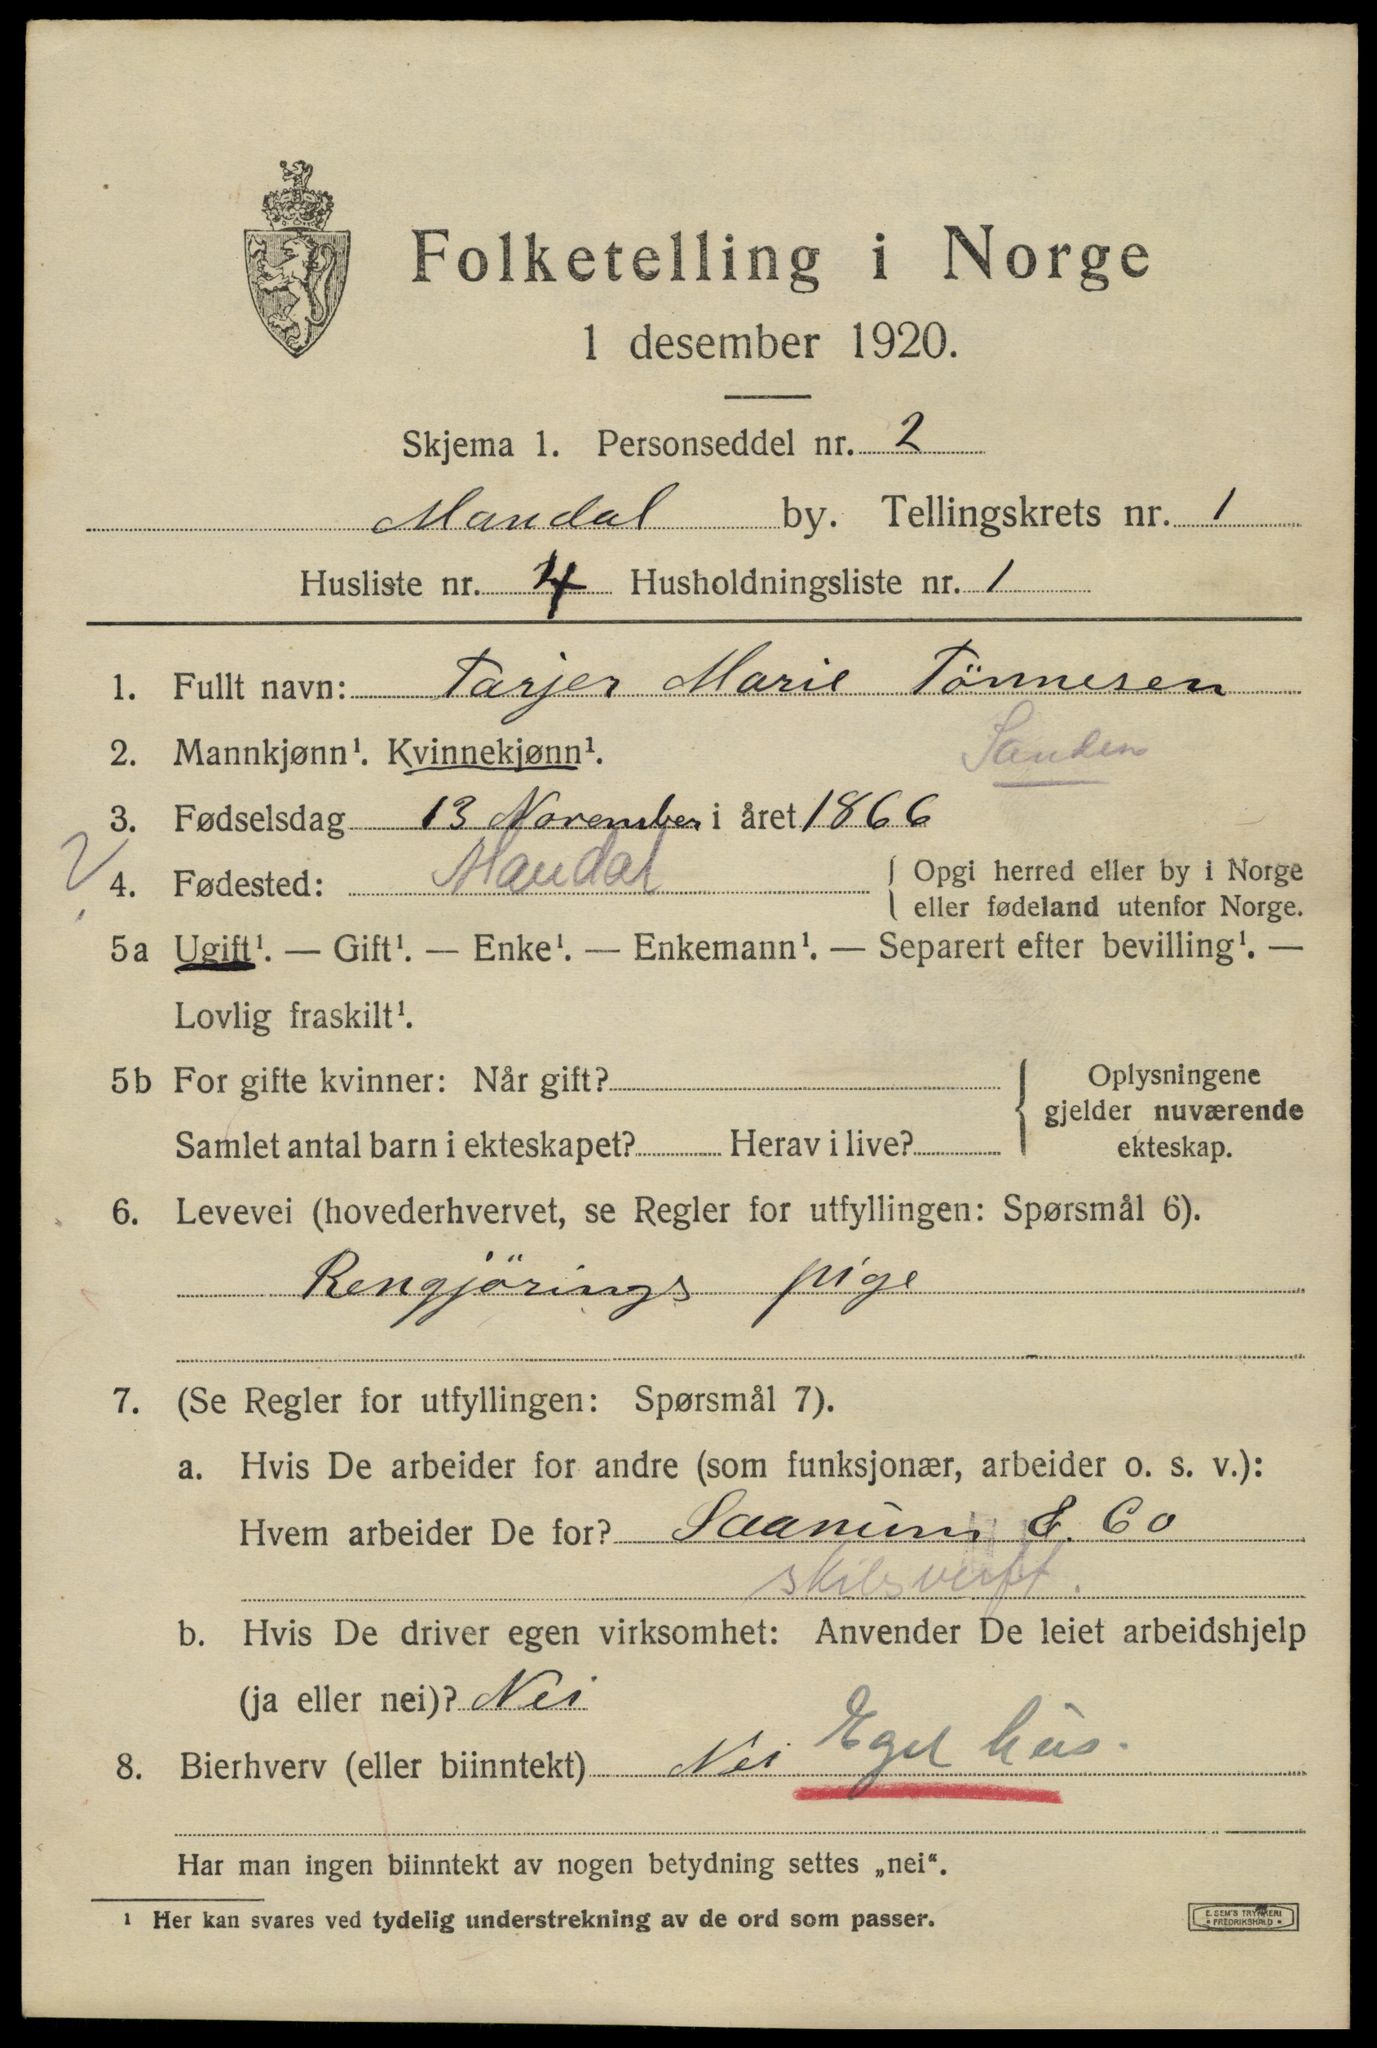 Folketelling i Norge
1 desember 1920.
Skjema 1. Personseddel nr. 2
Mandal by. Tellingskrets nr. 1
Husliste nr. 4 Husholdningsliste nr. 1
1. Fullt navn: Tarjer Marie Tönnesen
2. Mannkjønn¹. Kvinnekjønn¹. Sanden
3. Fødselsdag 13 November i året 1866
?
4. Fødested: Mandal { Opgi herred eller by i Norge
eller fødeland utenfor Norge.
5a Ugift¹. — Gift¹. — Enke¹. — Enkemann¹. — Separert efter bevilling¹. —
Lovlig fraskilt¹.
5b For gifte kvinner: Når gift? { Oplysningene
gjelder nuværende
Samlet antal barn i ekteskapet? Herav i live? ekteskap.
6. Levevei (hovederhvervet, se Regler for utfyllingen: Spørsmål 6).
Rengjörings pige
7. (Se Regler for utfyllingen: Spørsmål 7).
a. Hvis De arbeider for andre (som funksjonær, arbeider o. s. v.):
Hvem arbeider De for? Saanum & Co
skibsverft.
b. Hvis De driver egen virksomhet: Anvender De leiet arbeidshjelp
(ja eller nei)? Nei
8. Bierhverv (eller biinntekt) Nei Eget hus.
Har man ingen biinntekt av nogen betydning settes „nei“.
¹ Her kan svares ved tydelig understrekning av de ord som passer.
E. SEM'S TRYKKERI
FREDRIKSHALD